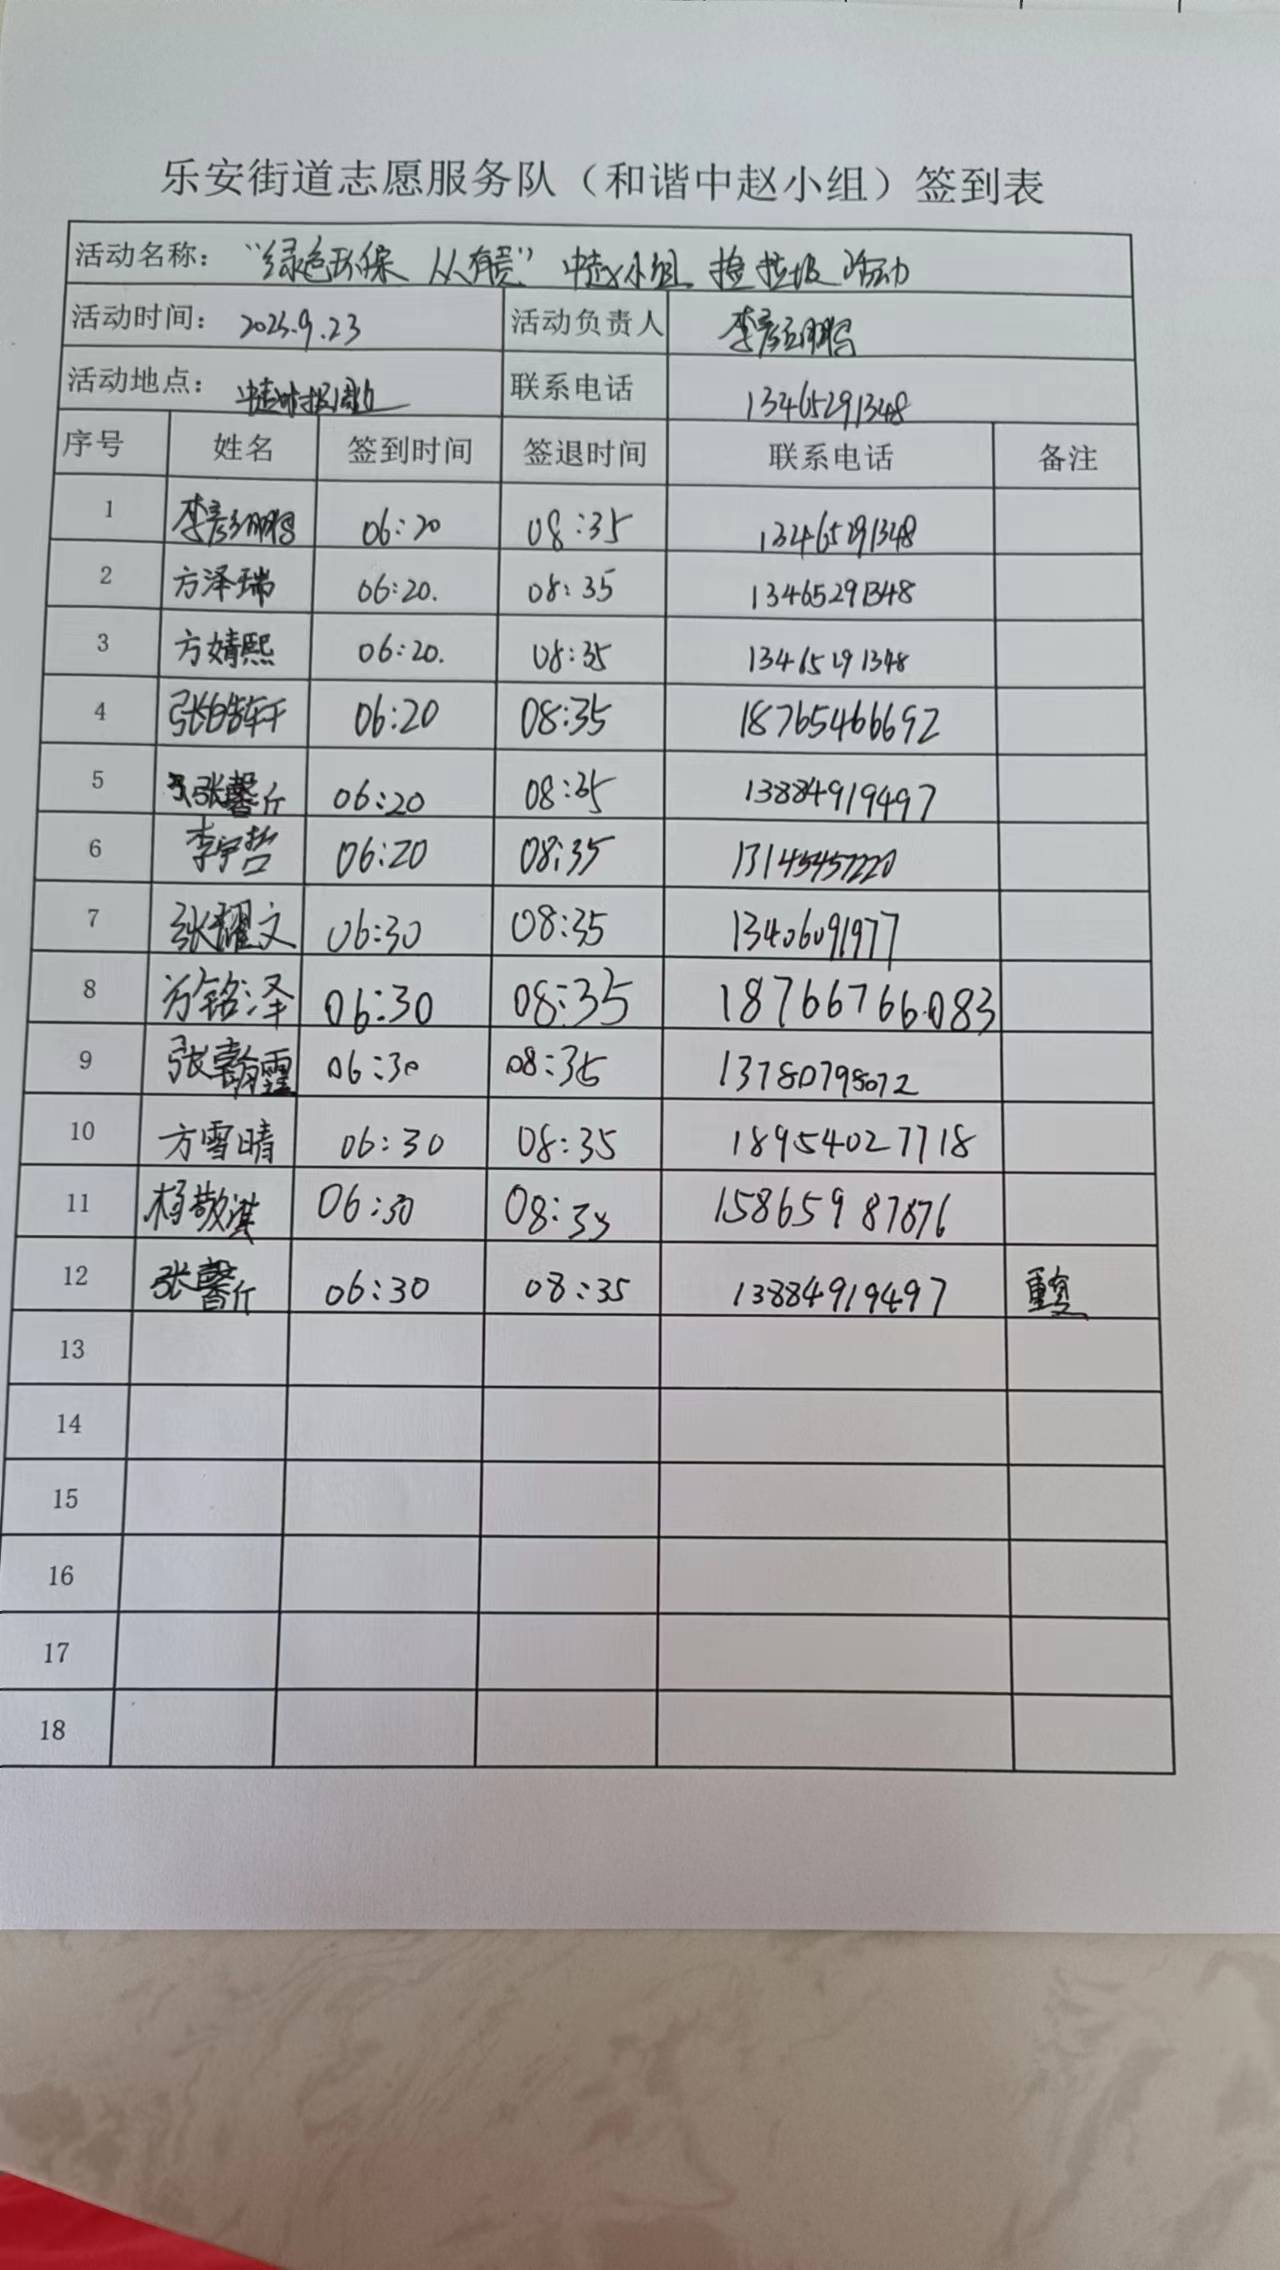 乐安街道志愿服务队（和谐中赵小组）签到表
活动名称： “绿色环保 从有责” 中赵小组 捡垃圾活动
活动时间： 2023.9.23 活动负责人 李彦鹏
活动地点： 中赵村 联系电话 13465291348
序号 姓名 签到时间 签退时间 联系电话 备注
1 06:20 08:35 13465291348
2 方泽瑞 06:20. 08:35 13465291348
3 方婧熙 06:20. 08:35 13465291348
4 张皓轩 06:20 08:35 18765466692
5 张馨斤 06:20 08:35 13884919497
6 李宇哲 06:20 08:35 13145457220
7 张耀文 06:30 08:35 13406091977
8 方铭泽 06:30 08:35 18766766083
9 张 06:30 08:35 13780798072
10 方雪晴 06:30 08:35 18954027718
11 杨敬淇 06:30 08:35 15865987876
12 张馨斤 06:30 08:35 13884919497 重复
13
14
15
16
17
18